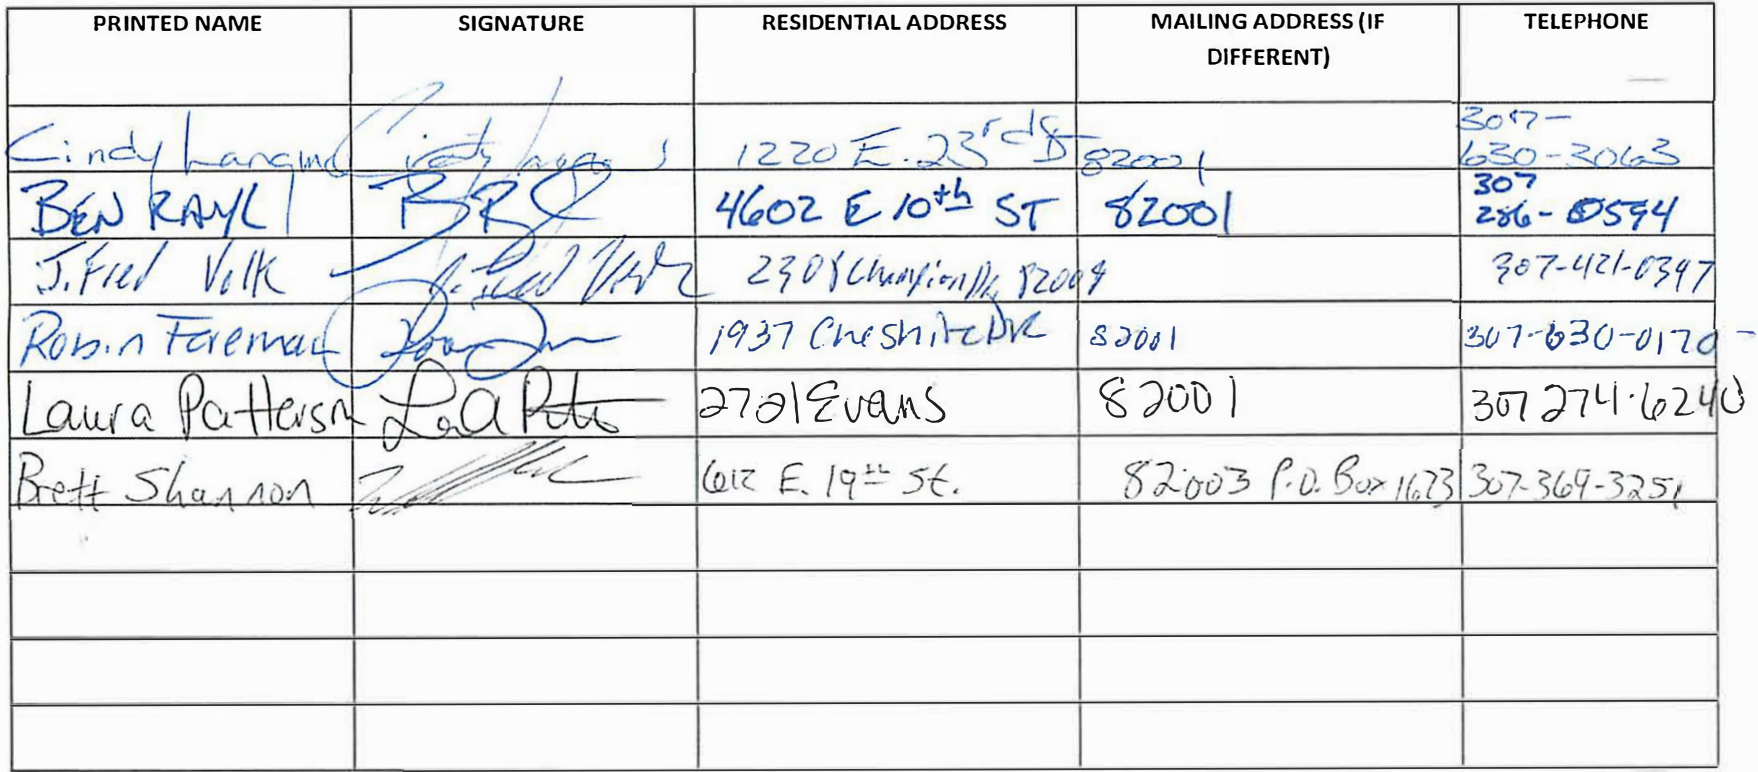 PRINTED NAME SIGNATURE RESIDENTIAL ADDRESS MAILING ADDRESS (IF DIFFERENT) TELEPHONE
Cindy 1220 E. 23rd St 82001 307-630-3063
BEN RAYL 4602 E 10th ST 82001 307 286-0594
J. Fred Volk J. Fred Volk 2308 Champion Dr. 82009 307-421-0397
Robin Foreman 1937 Cheshire DR 82001 307-630-0170
Laura Patterson 2721 Evans 82001 307 274-6240
Brett Shannon 612 E. 19th St. 82003 P.O. Box 1673 307-369-3251